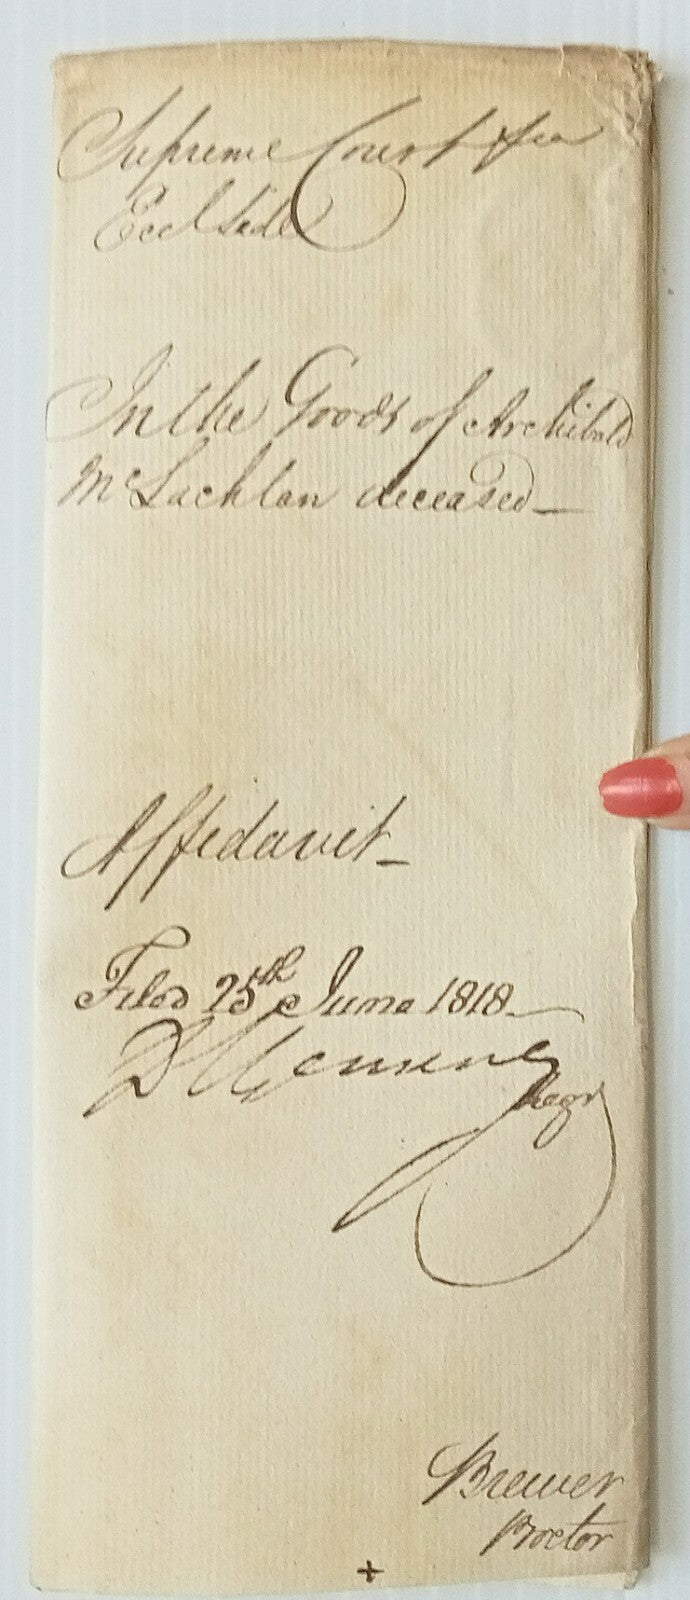 Supreme Court &ca
Eccl Side
In the Goods of Archibald
McLachlan deceased—
Affidavit—
Filed 25th June 1818—
Regr
Brewer
Proctor
+